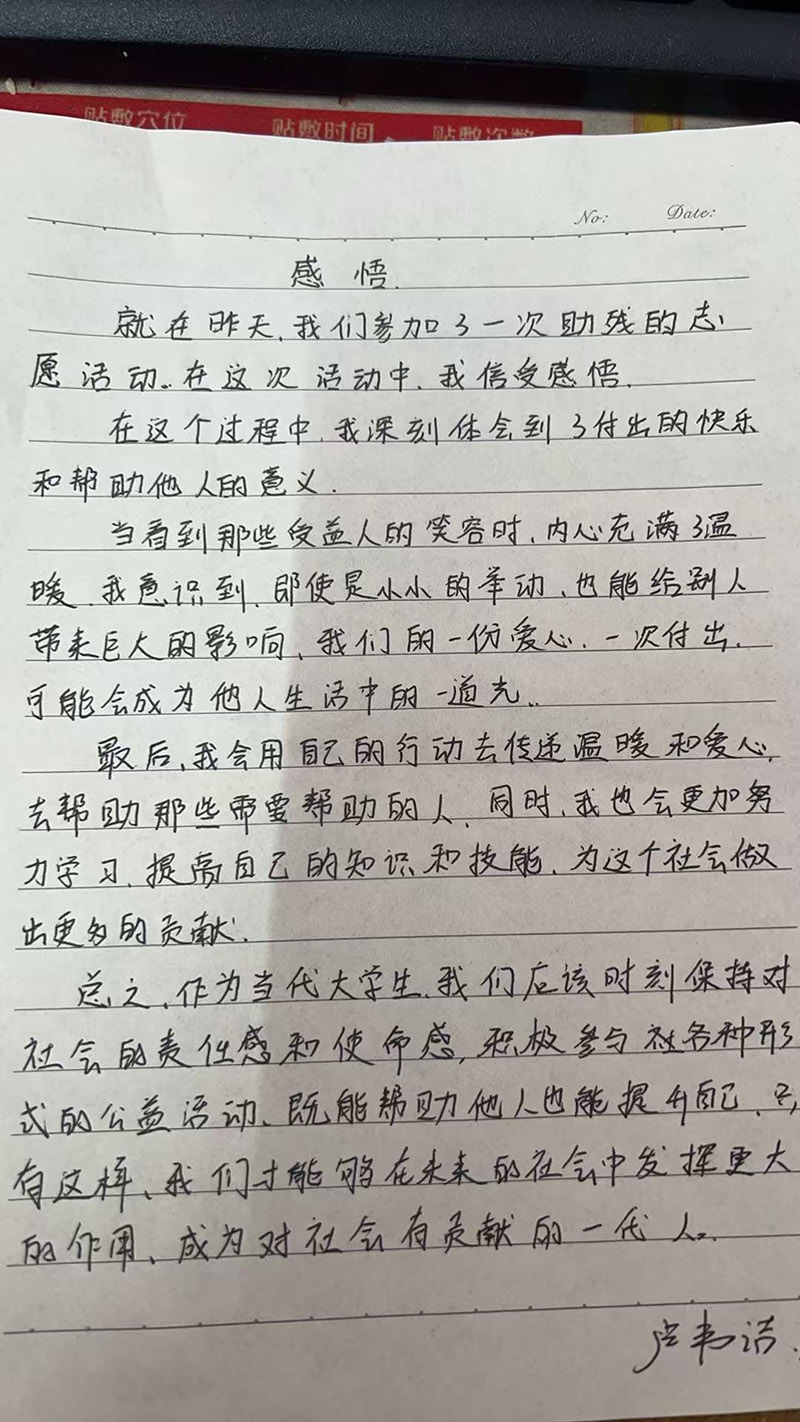 贴敷穴位 贴敷时间 贴敷次数
No: Date:
感悟.
就在昨天,我们参加了一次助残的志
愿活动..在这次活动中,我信受感悟.
在这个过程中,我深刻体会到了付出的快乐
和帮助他人的意义.
当看到那些受益人的笑容时,内心充满了温
暖,我意识到,即使是小小的举动,也能给别人
带来巨大的影响,我们的一份爱心,一次付出,
可能会成为他人生活中的一道光..
最后,我会用自己的行动去传递温暖和爱心,
去帮助那些需要帮助的人,同时,我也会更加努
力学习,提高自己的知识和技能,为这个社会做
出更多的贡献.
总之,作为当代大学生,我们应该时刻保持对
社会的责任感和使命感,积极参与社各种形
式的公益活动、既能帮助他人也能提升自己,只
有这样、我们才能够在未来的社会中发挥更大
的作用、成为对社会有贡献的一代人..
卢韦洁.